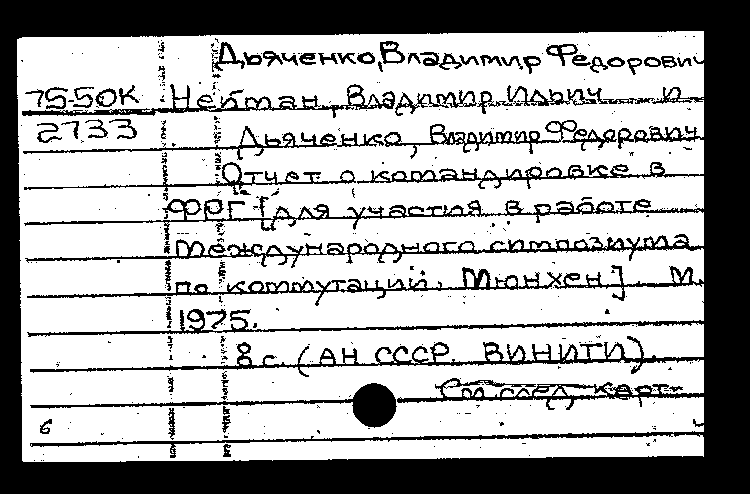 Дьяченко, Владимир Федорович
75-50К Нейман, Владимир Ильич и
2733 Дьяченко, Владимир Федорович
Отчет о командировке в
ФРГ [для участия в работе
международного симпозиума
по коммутации, Мюнхен]. М.
1975.
8 с. (АН СССР. ВИНИТИ).
См след. карт
6